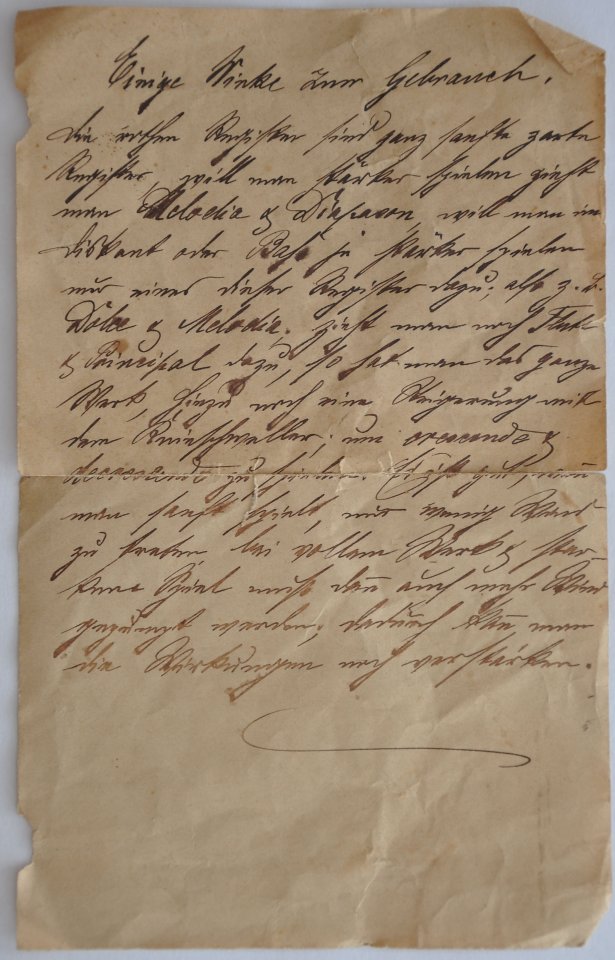 Einige Winke zum Gebrauch.
Die rothen Register sind ganz sanfte zarte
Register, will man stärker spielen zieht
man Melodia & Diapason, will man im
Diskant oder Baß je stärker spielen
nur eines dieser Register dazu, also z. B.
Dolce & Melodia. Zieht man noch Flute
& Principal dazu, so hat man das ganze
Werk, hiezu noch eine Steigerung mit
dem Knieschweller, um crescendo &
decrescendo zu spielen. Es ist gut, wenn
man sanft spielt, nur wenig Wind
zu treten, bei vollem Werk & star-
kem Spiel muß dann auch mehr Wind
gepumpt werden, dadurch kann man
die Wirkungen noch verstärken.